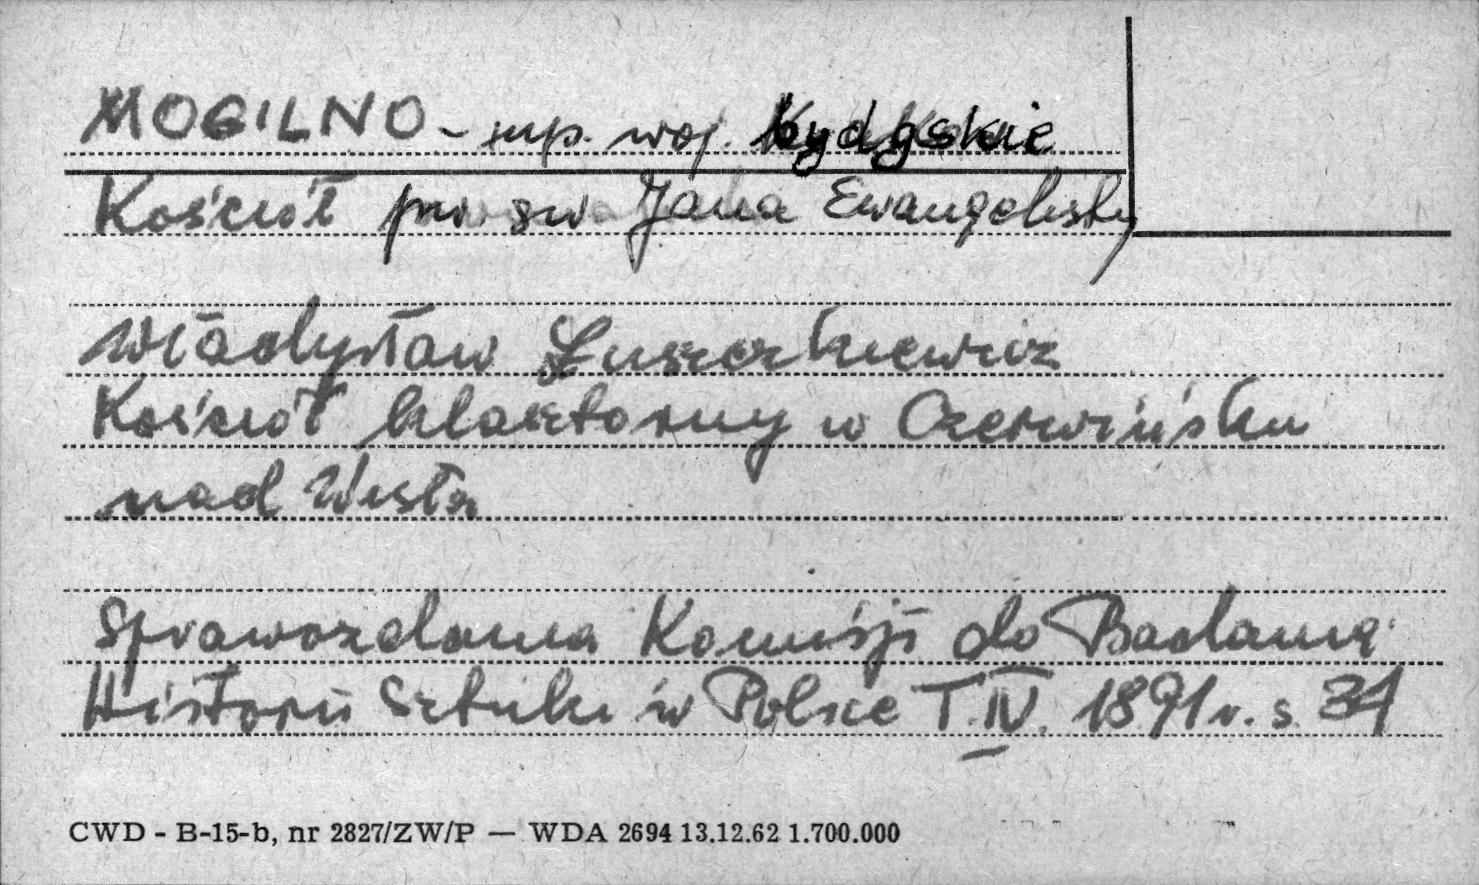 MOGILNO - mp. woj. bydgskie
Kościół pw św Jana Ewangelisty
Władysław Łuszczkiewicz
Kościół klasztorny w Czerwińsku
nad Wisłą
Sprawozdania Komisji do Badania
Historii Sztuki w Polsce T. IV. 1891 r. s. 31
CWD - B-15-b, nr 2827/ZW/P — WDA 2694 13.12.62 1.700.000